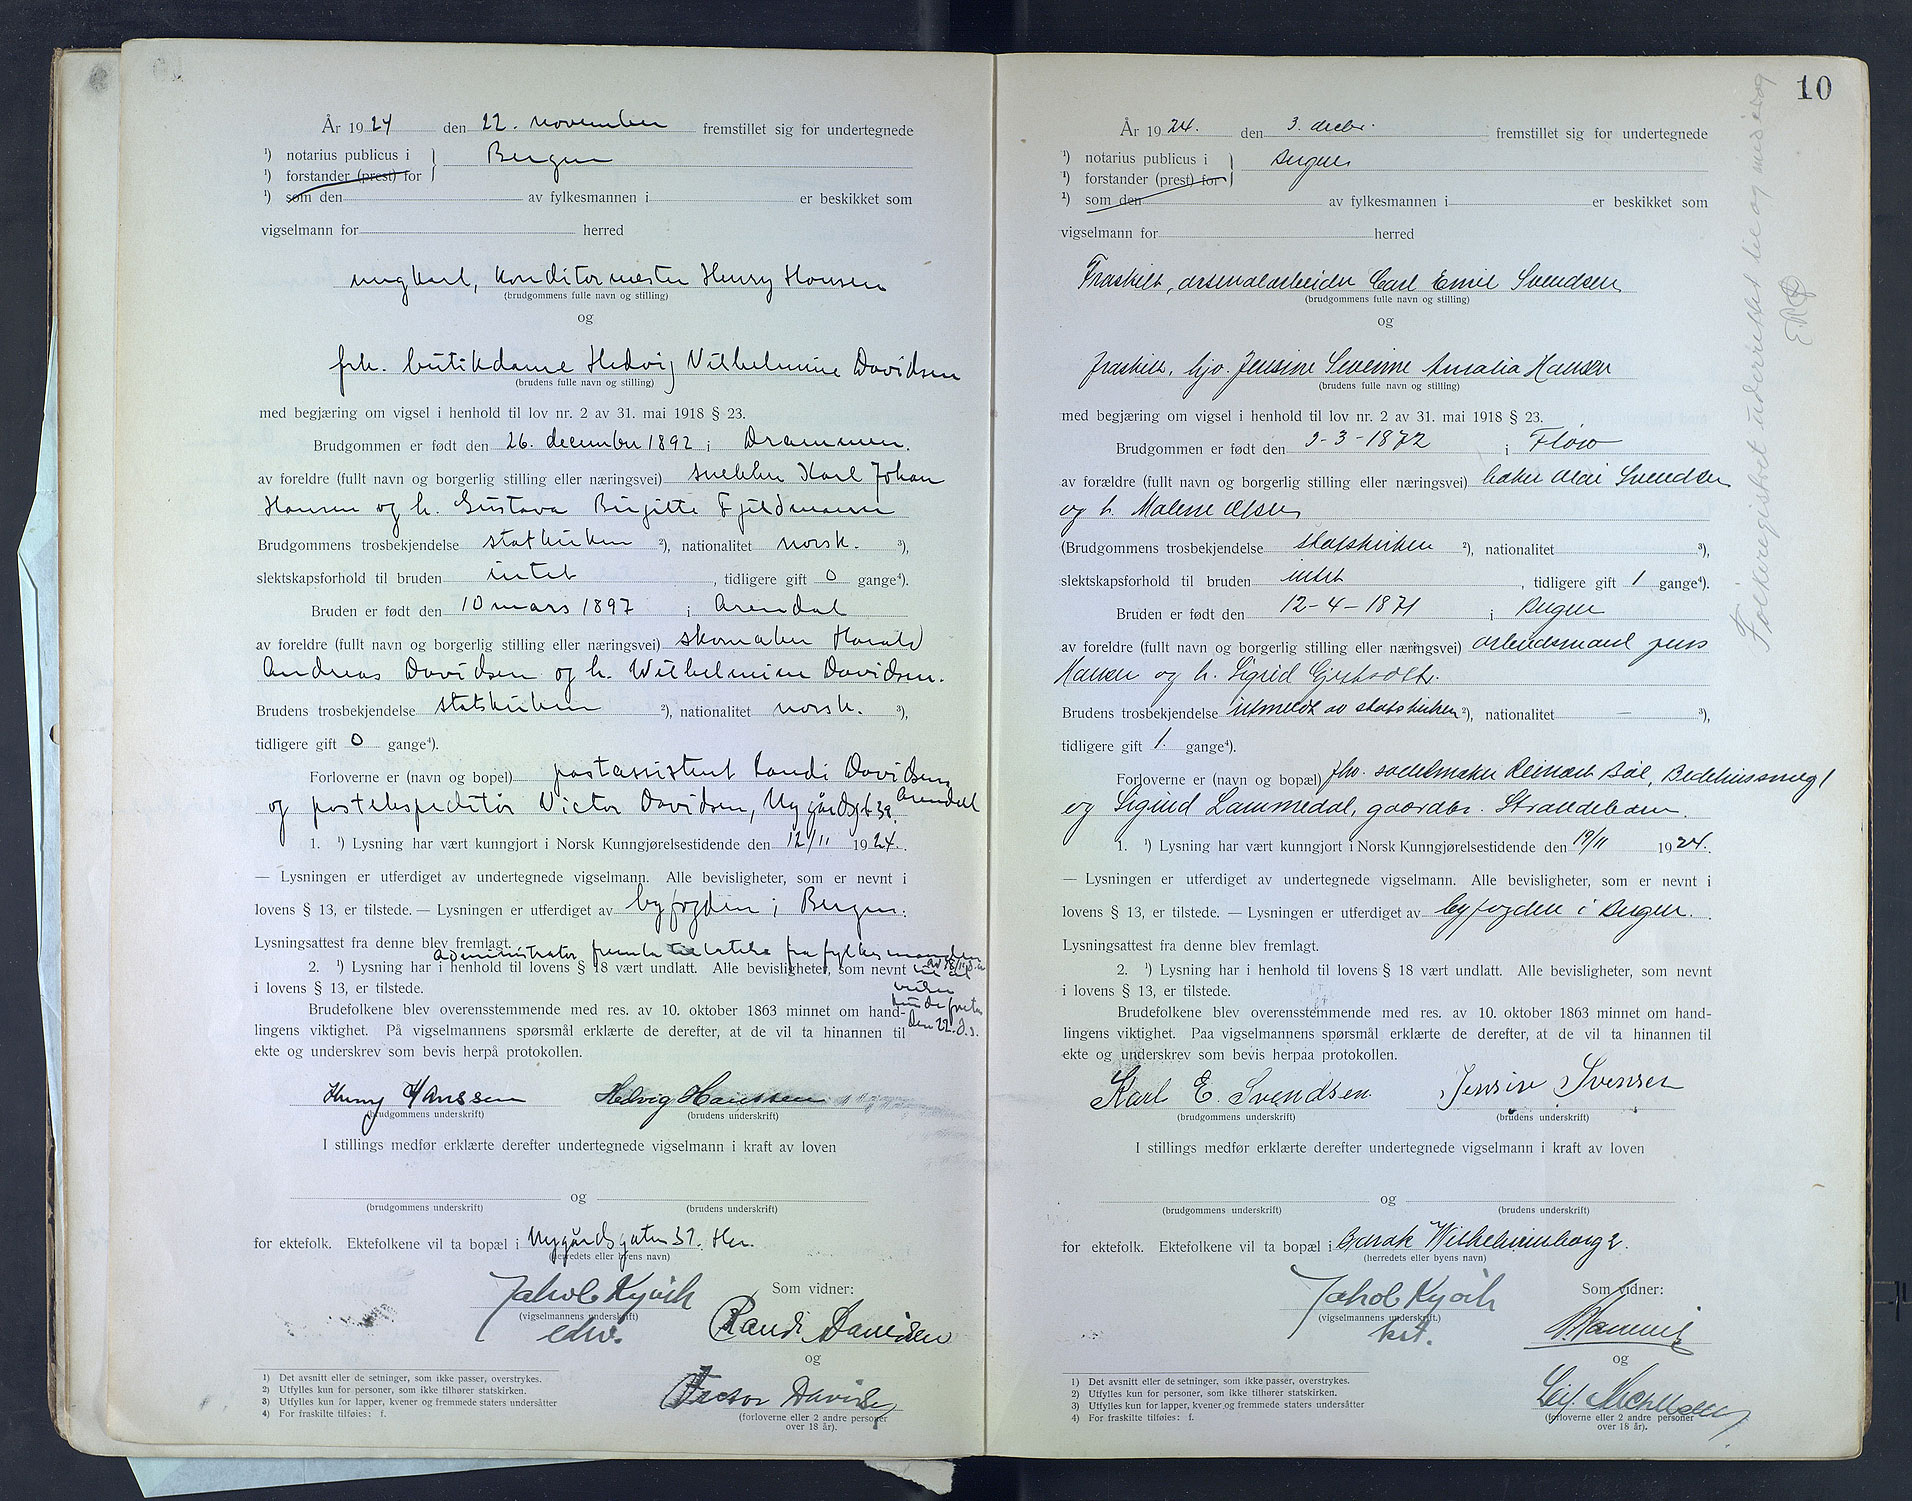 År 1924 den 22. november fremstillet sig for undertegnede
¹) notarius publicus i } Bergen
¹) forstander (prest) for
¹) som den av fylkesmannen i er beskikket som
vigselmann for herred
ungkarl, konditormester Henry Hansen
(brudgommens fulle navn og stilling)
og
frk. butikdame Hedvig Vilhelmine Davidsen
(brudens fulle navn og stilling)
med begjæring om vigsel i henhold til lov nr. 2 av 31. mai 1918 § 23.
Brudgommen er født den 26. december 1892 i Drammen.
av foreldre (fullt navn og borgerlig stilling eller næringsvei) snekker Karl Johan
Hansen og h. Gustava Birgitte Fjeldmann
Brudgommens trosbekjendelse statskirken ²), nationalitet norsk. ³),
slektskapsforhold til bruden intet, tidligere gift 0 gange⁴).
Bruden er født den 10 mars 1897 i Arendal
av foreldre (fullt navn og borgerlig stilling eller næringsvei) skomaker Harald
Andreas Davidsen og h. Wilhelmine Davidsen.
Brudens trosbekjendelse statskirken ²), nationalitet norsk. ³),
tidligere gift 0 gange⁴).
Forloverne er (navn og bopel) postassistent Randi Davidsen, Arendal
og postekspeditør Victor Davidsen, Nygårdsgt 39.
1. ¹) Lysning har vært kunngjort i Norsk Kunngjørelsestidende den 12/11 1924.
— Lysningen er utferdiget av undertegnede vigselmann. Alle bevisligheter, som er nevnt i
lovens § 13, er tilstede. — Lysningen er utferdiget av byfogden i Bergen.
Lysningsattest fra denne blev fremlagt.
administrator fremla tillatelse fra fylkesmannen
av 18/11 d.a.
2. ¹) Lysning har i henhold til lovens § 18 vært undlatt. Alle bevisligheter, som nevnt
i lovens § 13, er tilstede.
den 22. d.s.
Brudefolkene blev overensstemmende med res. av 10. oktober 1863 minnet om hand-
lingens viktighet. På vigselmannens spørsmål erklærte de derefter, at de vil ta hinannen til
ekte og underskrev som bevis herpå protokollen.
Henry Hanssen Hedvig Hanssen
(brudgommens underskrift) (brudens underskrift)
I stillings medfør erklærte derefter undertegnede vigselmann i kraft av loven
og
(brudgommens underskrift) (brudens underskrift)
for ektefolk. Ektefolkene vil ta bopæl i Nygårdsgaten 37. Her.
(herredets eller byens navn)
Som vidner:
Jakob Kjørik
(vigselmannens underskrift)
edv.
Randi Davidsen
og
Victor Davidsen
(forloverne eller 2 andre personer
over 18 år).
1) Det avsnitt eller de setninger, som ikke passer, overstrykes.
2) Utfylles kun for personer, som ikke tilhører statskirken.
3) Utfylles kun for lapper, kvener og fremmede staters undersåtter
4) For fraskilte tilføies: f.
10
År 1924. den 3. decbr. fremstillet sig for undertegnede
¹) notarius publicus i } Bergen
¹) forstander (prest) for
¹) som den av fylkesmannen i er beskikket som
vigselmann for herred
Fraskilt, arsenalarbeider Carl Emil Svendsen
(brudgommens fulle navn og stilling)
og
fraskilt, hjv. Jensine Severine Amalia Hansen
(brudens fulle navn og stilling)
med begjæring om vigsel i henhold til lov nr. 2 av 31. mai 1918 § 23.
Brudgommen er født den 3-3-1872 i Florø
av forældre (fullt navn og borgerlig stilling eller næringsvei) baker Olai Svendsen
og h. Malene Olsen
(Brudgommens trosbekjendelse statskirken ²), nationalitet ³),
slektskapsforhold til bruden intet, tidligere gift 1 gange⁴).
Bruden er født den 12-4-1871 i Bergen
av foreldre (fullt navn og borgerlig stilling eller næringsvei) arbeidsmand Jens
Hansen og h. Sigrid
Brudens trosbekjendelse utmeldt av statskirken ²), nationalitet — ³),
tidligere gift 1. gange⁴).
Forloverne er (navn og bopæl) fhv. sadelmaker Reinert Bøe, Bedehussmug 1
og Sigurd Lammedal, gaardbr. Strandebarm.
1. ¹) Lysning har vært kunngjort i Norsk Kunngjørelsestidende den 19/11 1924.
— Lysningen er utferdiget av undertegnede vigselmann. Alle bevisligheter, som er nevnt i
lovens § 13, er tilstede. — Lysningen er utferdiget av byfogden i Bergen.
Lysningsattest fra denne blev fremlagt.
2. ¹) Lysning har i henhold til lovens § 18 vært undlatt. Alle bevisligheter, som nevnt
i lovens § 13, er tilstede.
Brudefolkene blev overensstemmende med res. av 10. oktober 1863 minnet om hand-
lingens viktighet. Paa vigselmannens spørsmål erklærte de derefter, at de vil ta hinannen til
ekte og underskrev som bevis herpaa protokollen.
Karl E. Svendsen Jensine Svensen
(brudgommens underskrift) (brudens underskrift)
I stillings medfør erklærte derefter undertegnede vigselmann i kraft av loven
og
(brudgommens underskrift) (brudens underskrift)
for ektefolk. Ektefolkene vil ta bopæl i Barak Wilhelmineborg 2.
(herredets eller byens navn)
Som vidner:
Jakob Kjørik
(vigselmannens underskrift.)
kst.
og
(forloverne eller 2 andre personer
over 18 år).
1) Det avsnitt eller de setninger, som ikke passer, overstrykes.
2) Utfylles kun for personer, som ikke tilhører statskirken.
3) Utfylles kun for lapper, kvener og fremmede staters undersåtter
4) For fraskilte tilføies: f.
Folkeregistret underrettet